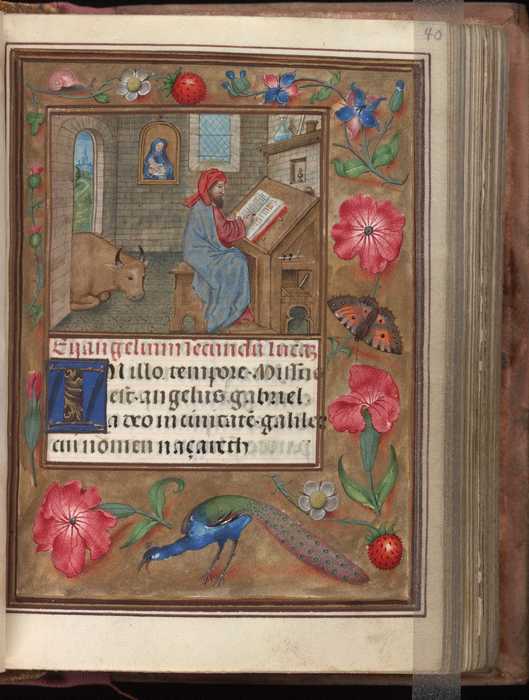 40
Euangelium secundū lucaz
IN illo tempore· Missus
est· angelus gabriel
a deo in ciuitatē· galilee
cui nomen naçareth